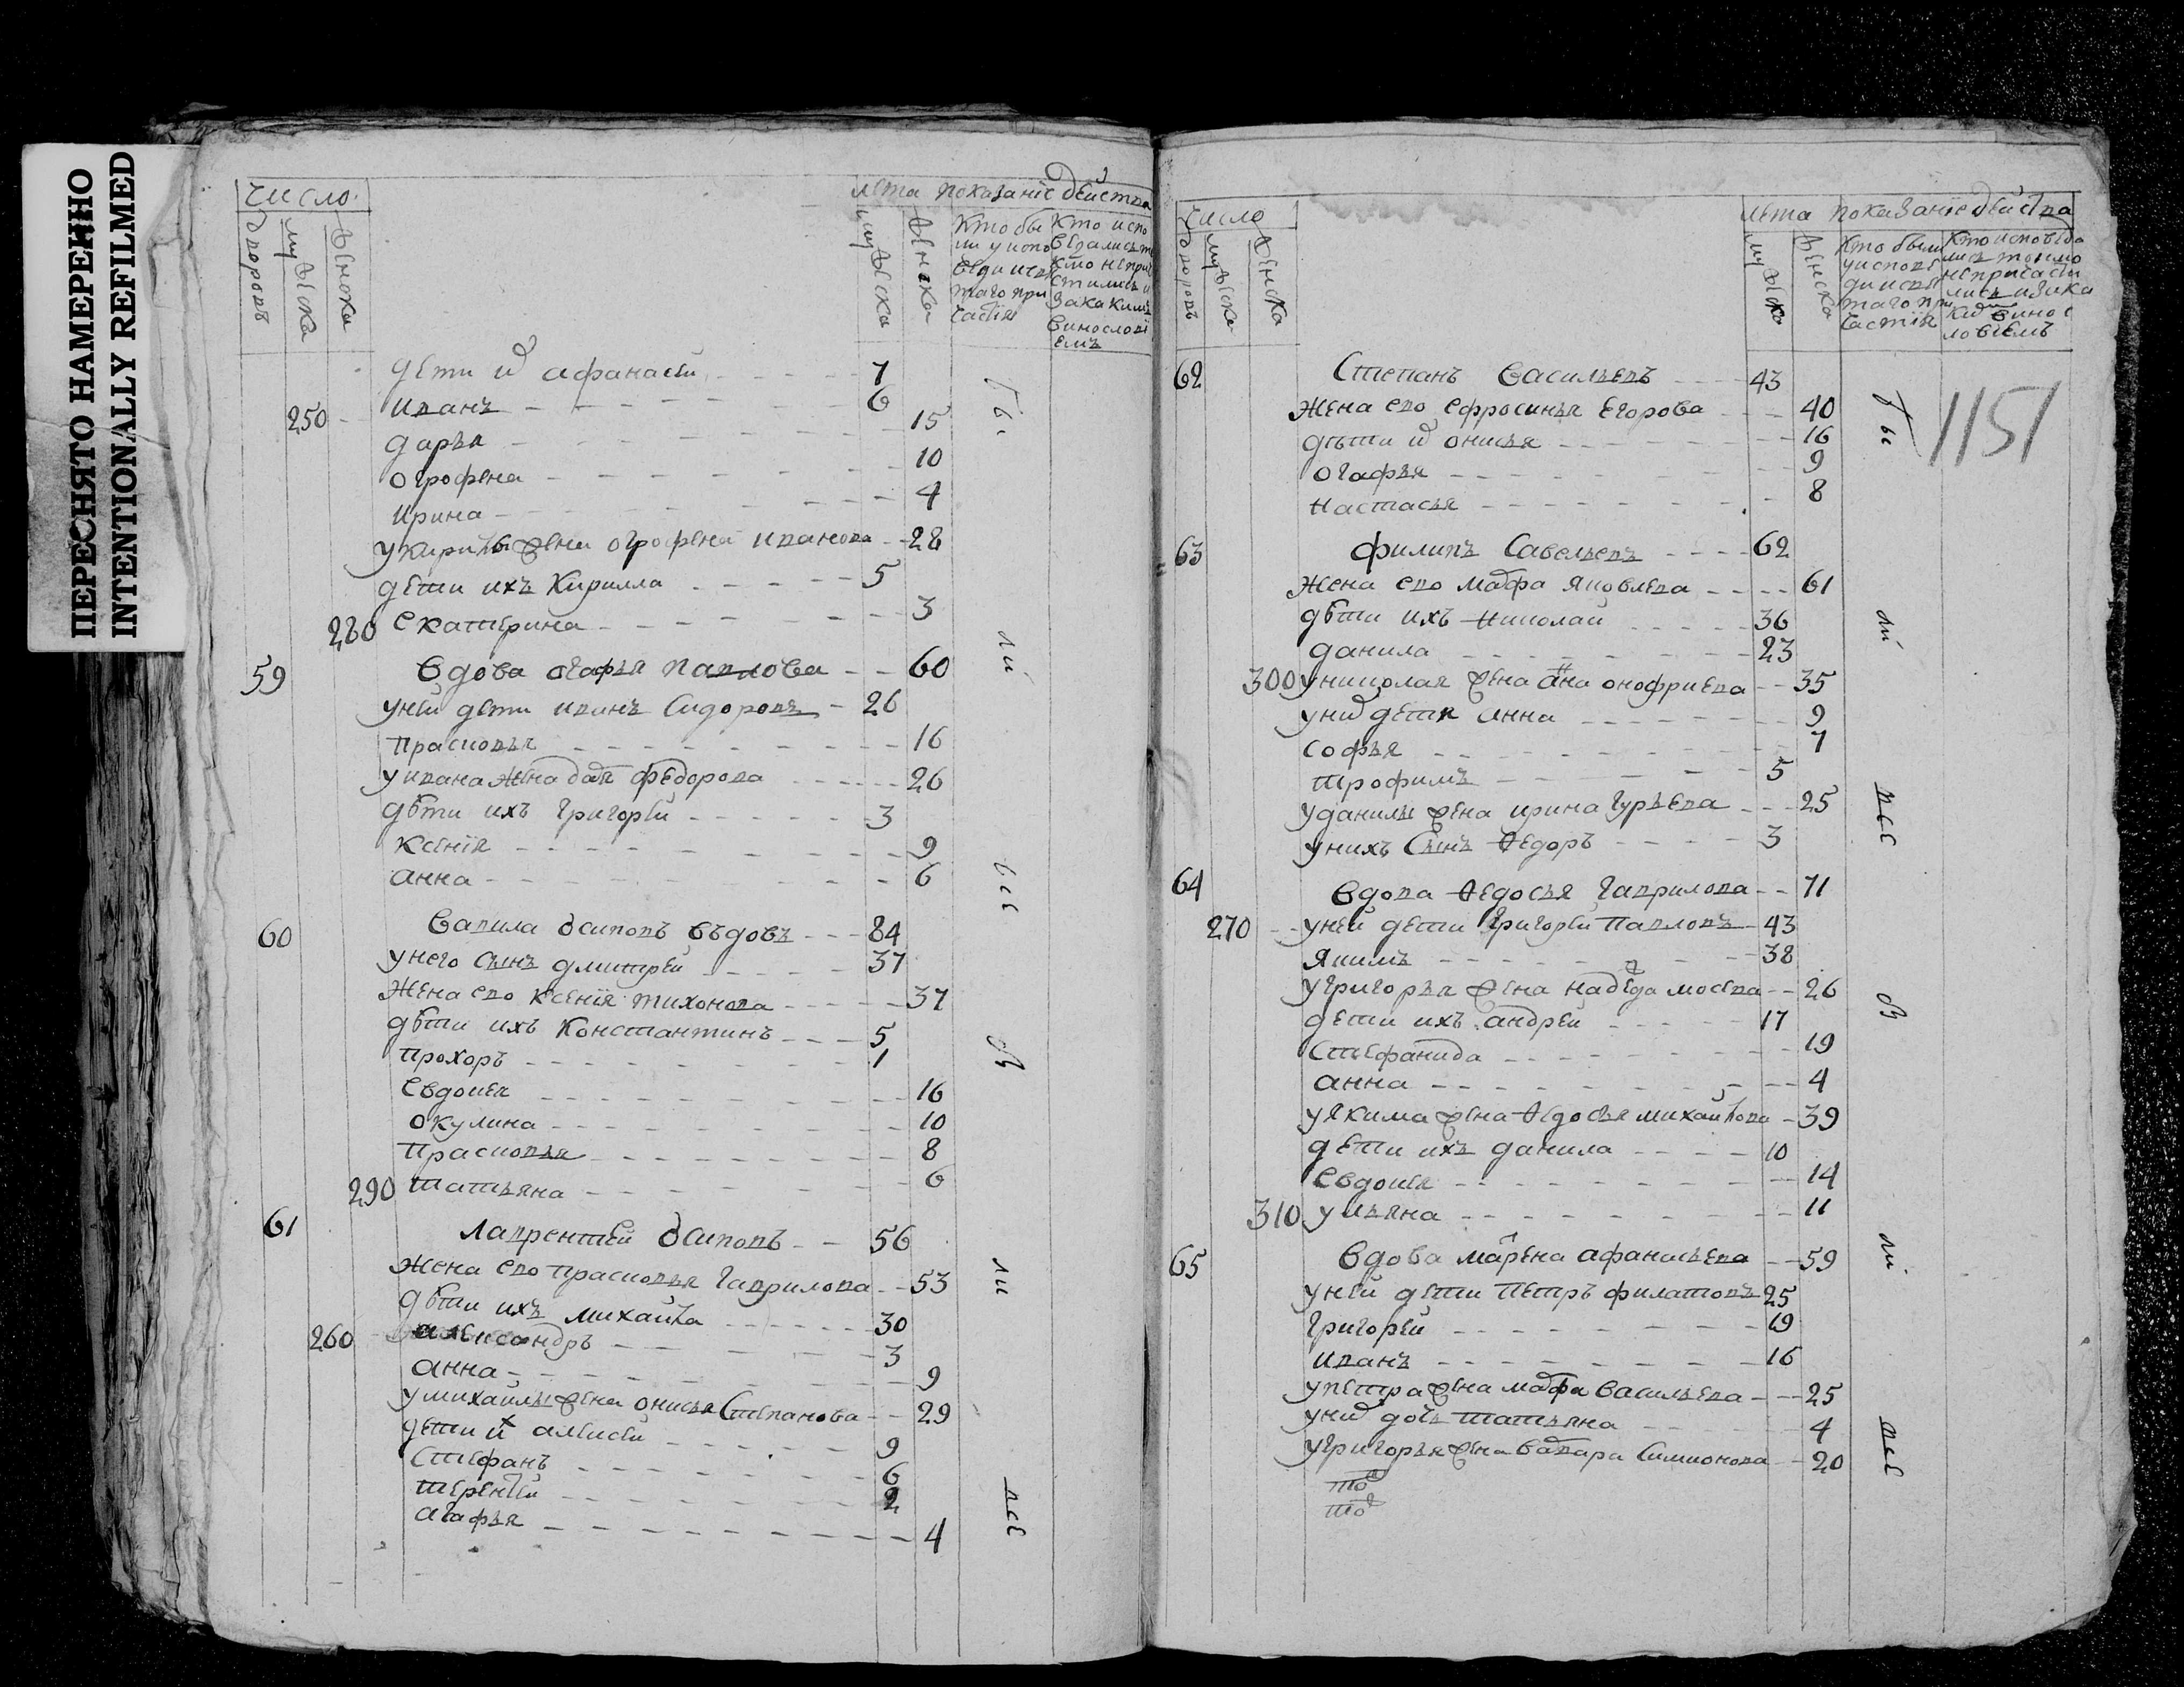 ПЕРЕСНЯТО НАМЕРЕННО
INTENTIONALLY REFILMED
число
дворовъ
мужеска
женска
лета показаніе действа
мужеска
женска
Кто бы
ли у испо
веди и свя
таго при
частія
Кто испо
ведались т
кмо непри
стились и
за какимъ
винослові
емъ
дети их афанасеи 7
250 иванъ 6
дарья 15
огрофена 10
ирина 4
у кирилы жена огрофена иванова 28
дети ихъ Кирилла 5
280 екатерина 3
59 вдова огафья павлова 60
у неи дети иванъ Сидоровъ 26
прасковья 16
у ивана жена дарья федорова 26
дѣти ихъ Григореи 3
ксенія 9
анна 6
60 вавила осиповъ вѣдовъ 84
у него сынъ дмитреи 37
жена ево ксенія тихонова 37
дѣти ихъ константинъ 5
прохоръ 1
евдокея 16
окулина 10
прасковья 8
290 татьяна 6
61 лаврентеи осиповъ 56
жена ево прасковья гаврилова 53
дѣти ихъ михаила 30
260 александръ 3
анна 9
у михаилы жена онисья степанова 29
дети их алексеи 9
стефанъ 6
терентеи 2
агафья 4
бы
ли
все
бы
ли
все
число
дворовъ
мужеска
женска
лета показаніе действа
мужеска
женска
Кто были
у испове
ди и свя
таго при
частія
Кто исповеда
лись токмо
непричасти
лись и за ка
ким винос
ловіемъ
1151
62 Степанъ васильевъ 43
жена ево ефросинья егорова 40
дѣти их онисья 16
огафья 9
настасья 8
63 филипъ Савельевъ 62
жена ево марфа яковлева 61
дѣти ихъ николаи 36
данила 23
300 у николая жена анна онофриева 35
у них дети анна 9
софья 7
трофимъ 5
у данилы жена ирина гурьева 25
у нихъ сынъ ѳедоръ 3
64 вдова ѳедосья гаврилова 71
270 у неи дети григореи павловъ 43
якимъ 38
у григорья жена надежда мосеева 26
дети ихъ андреи 17
стефанида 19
анна 4
у якима жена ѳедосья михаилова 39
дети ихъ данила 10
евдокея 14
310 ульяна 11
65 вдова марена афанасьева 59
у неи дети петръ филатовъ 25
григореи 19
иванъ 16
у петра жена марфа васильева 25
у них дочь татьяна 4
у григорья жена варвара симионова 20
бы
ли
все
бы
ли
все